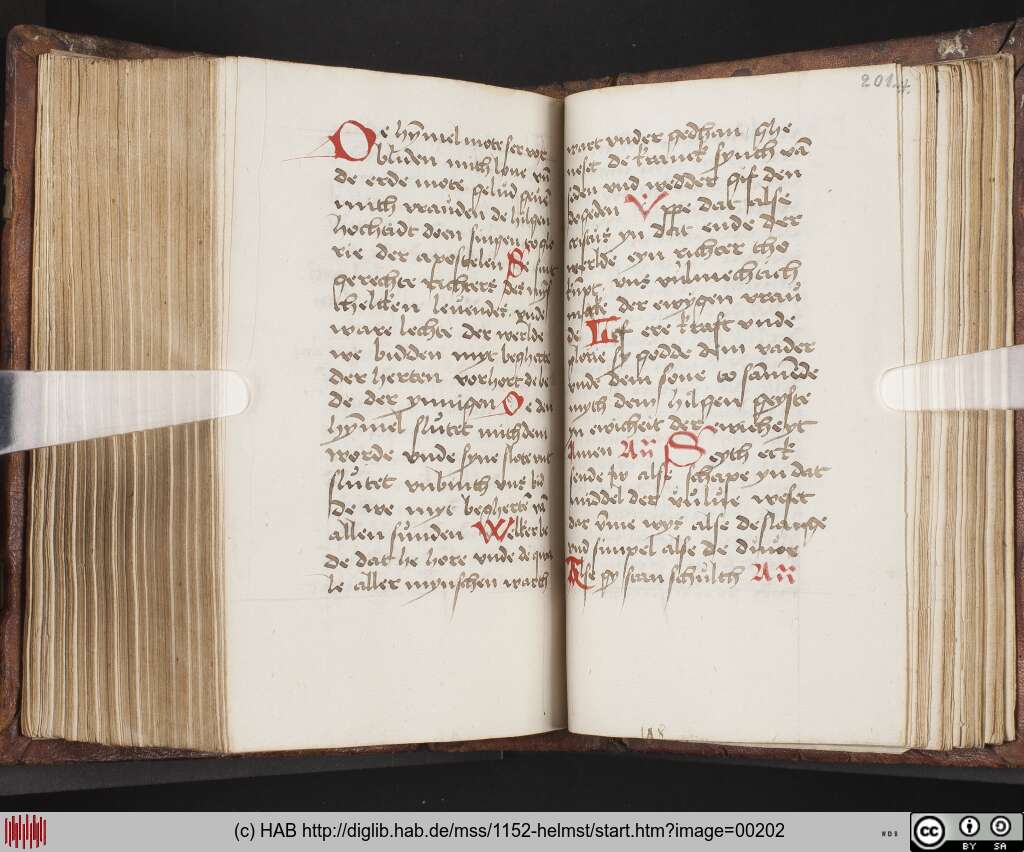 De hȳmel mote ser vor
bliden mith love vn̄
de erde mote gelud geuē
mith vrauden de hilgen
hochtidt doen singen to glo
rie der apostelen Se sint
gerechte Richters des myn
schelcken leuendes vnde
ware lechte der werlde
we bidden myt begherte
der herten vorhort de be
de der ynnigen De den
hȳmel slutet mith dem
worde vnde syne slote vnt
slutet vnbinth vns bid
De we myt begherte vā
allen sunden Welker be
de dat he hore vnde de qua
le aller mynschen warth
wart vnder gedhan ghe
neset de kranck synth vā
seden vnd wedder gif den
dogeden Vppe dat alse
cristus yn dat ende der
werlde eyn richter tho
kūpt vns vulmechtich
make der ewygen vrau
de Lof ere kraft vnde
glorie sy godde dem vader
vnde dem sone to sāmēde
myth dem hilgen geyste
yn ewicheit der ewicheyt
Amen An Seyth ick
sende iw alse schape yn dat
middel der wulue weset
dar vme wys alse de slange
vnd simpel alse de duue
Alse gy stan schulth An
201.
(c) HAB http://diglib.hab.de/mss/1152-helmst/start.htm?image=00202
WDB
cc
BY SA